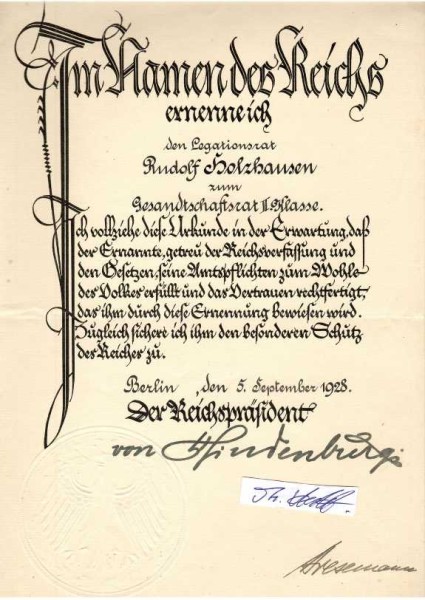 Im Namen des Reichs
ernenne ich
den Legationsrat
Rudolf Holzhausen
zum
Gesandtschaftsrat II. Klasse.
Ich vollziehe diese Urkunde in der Erwartung, daß
der Ernannte, getreu der Reichsverfassung und
den Gesetzen, seine Amtspflichten zum Wohle
des Volkes erfüllt und das Vertrauen rechtfertigt,
das ihm durch diese Ernennung bewiesen wird.
Zugleich sichere ich ihm den besonderen Schutz
des Reiches zu.
Berlin, den 5. September 1928.
Der Reichspräsident
von Hindenburg
Stresemann